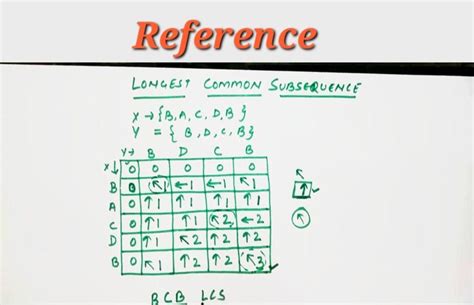 Reference
LONGEST COMMON SUBSEQUENCE
X → {B, A, C, D, B}
Y = { B, D, C, B}
Y→ B D C B
X↓ 0 0 0 0 0
B 0 ↖1 ←1 ←1 ↖1
A 0 ↑1 ↑1 ↑1 ↑1
C 0 ↑1 ↑1 ↖2 ←2
D 0 ↑1 ↖2 ↑2 ↑2
B 0 ↖1 ↑2 ↑2 ↖3
↖
↑ ✓
↖
BCB LCS